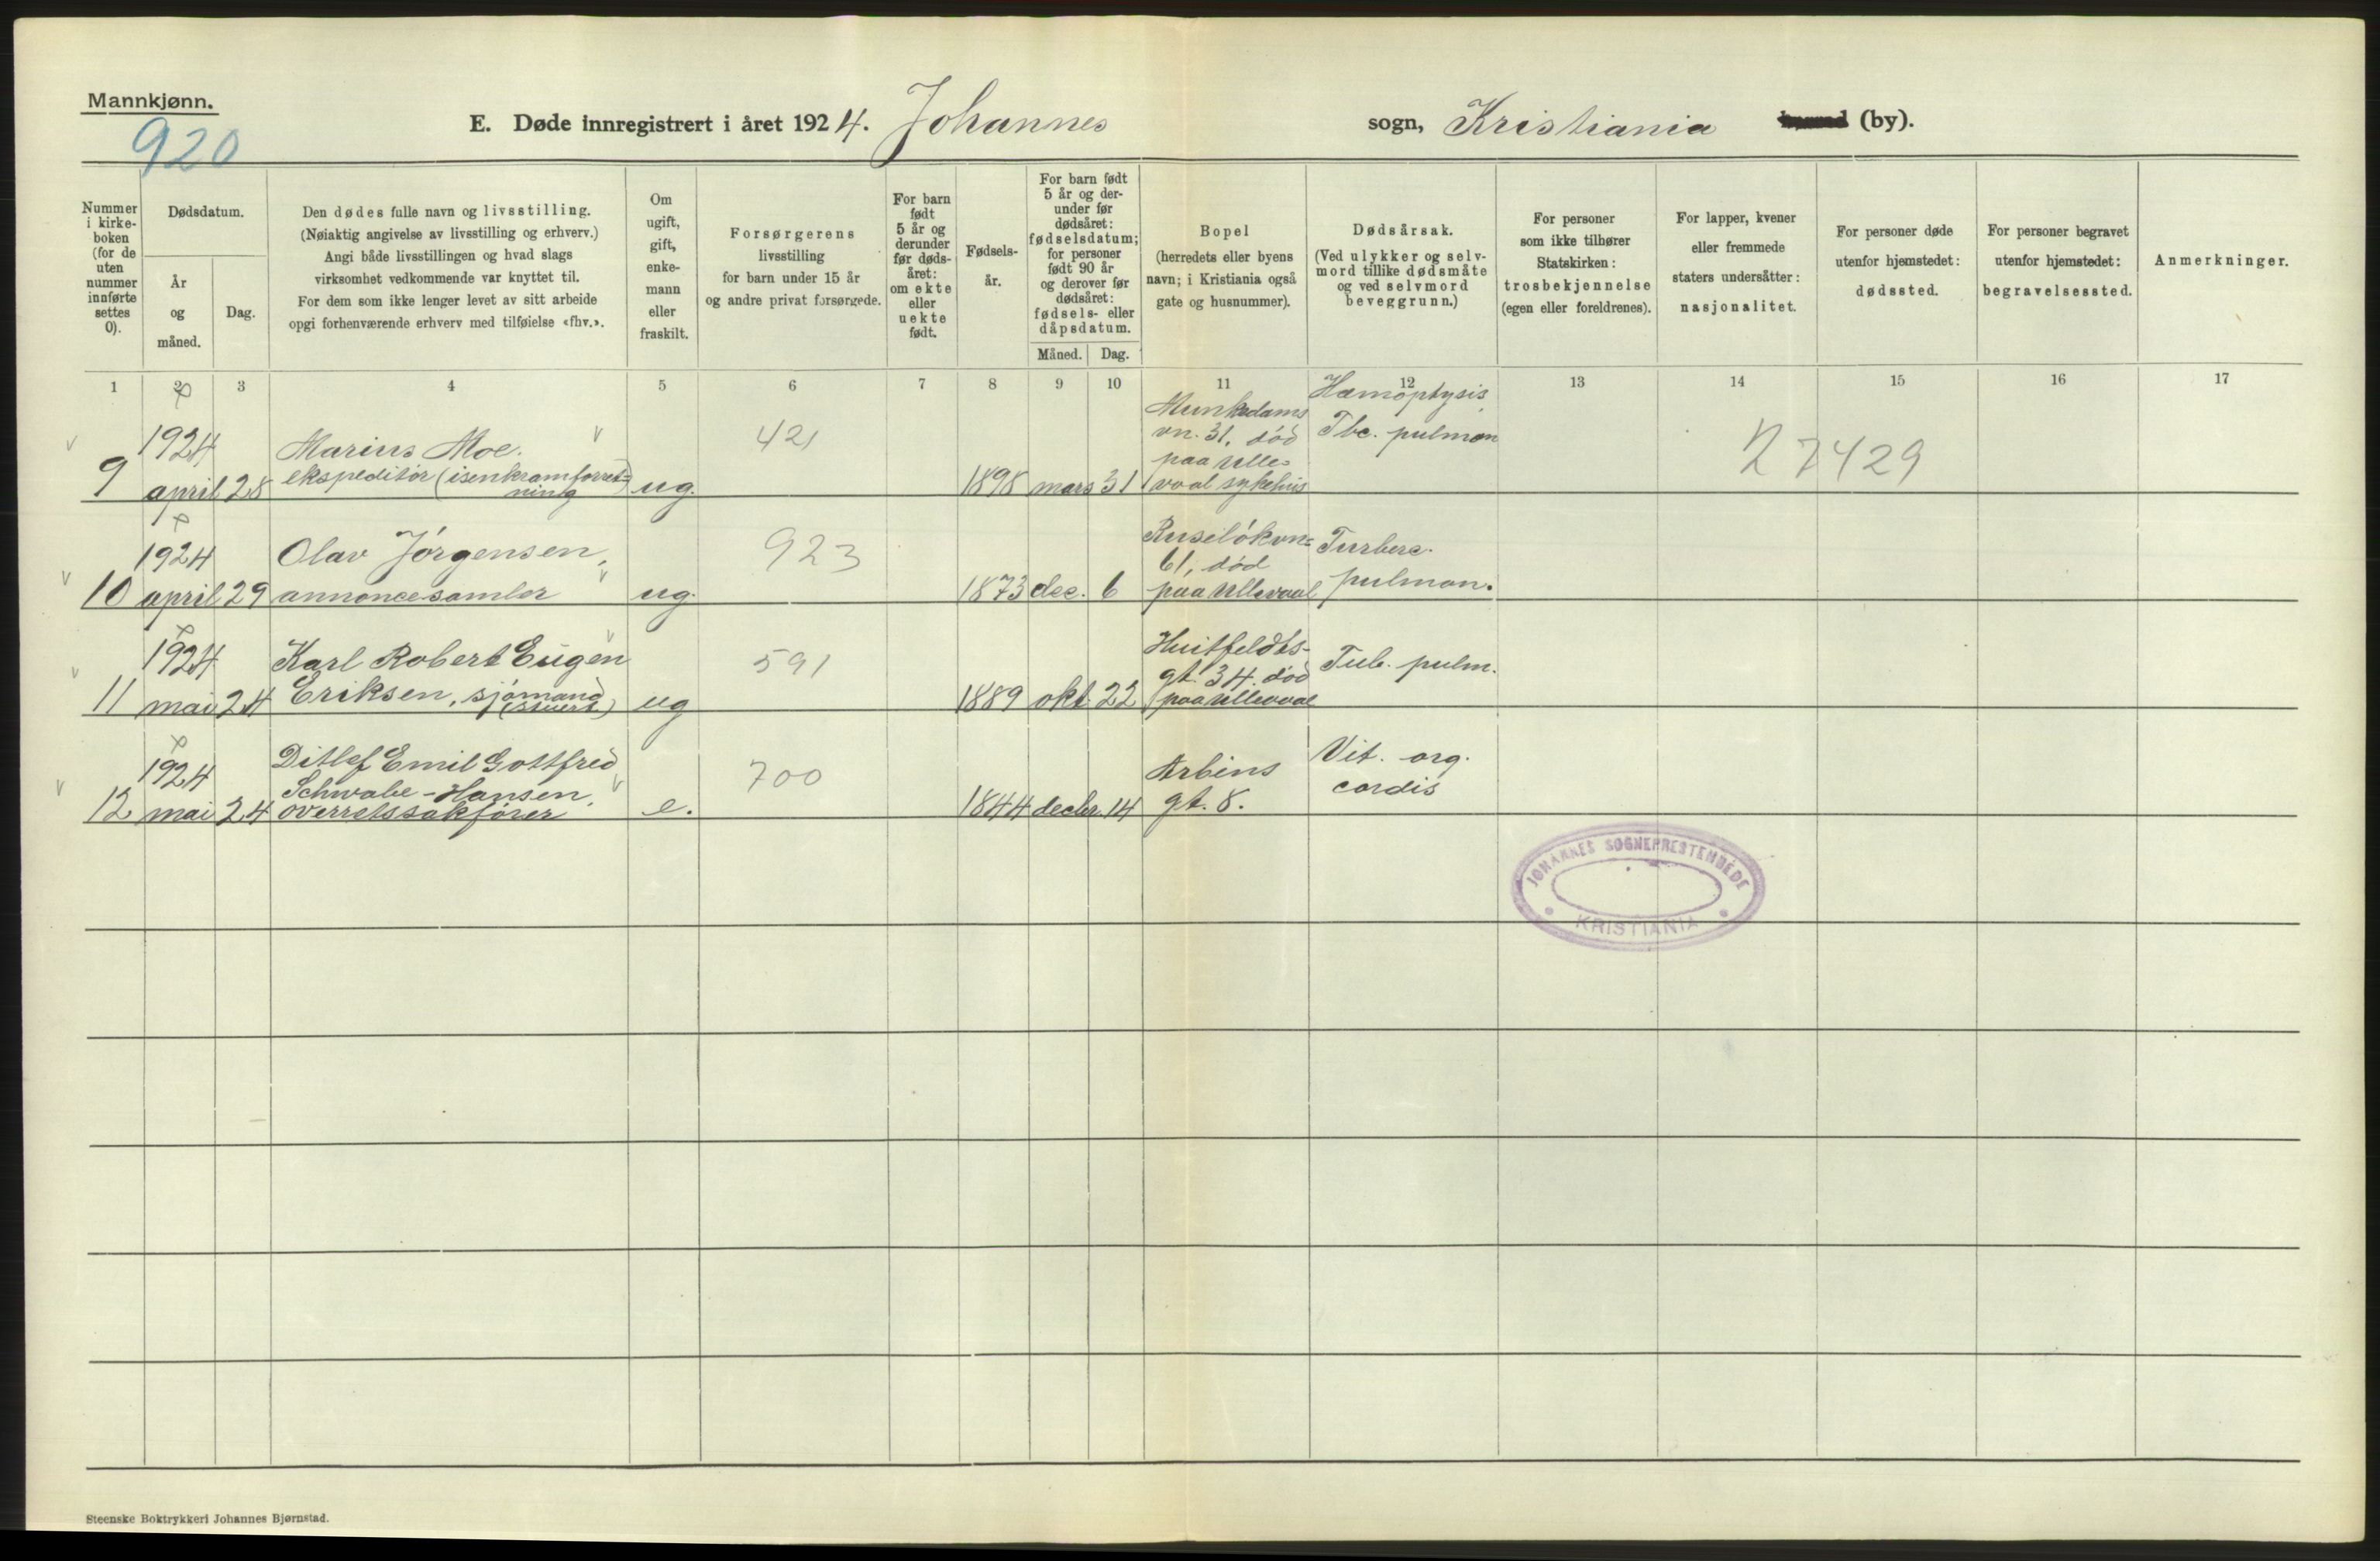 Mannkjønn.
920
E. Døde innregistrert i året 1924. Johannes sogn, Kristiania (by).
Nummer i kirke-boken (for de uten nummer innførte settes 0).
Dødsdatum.
År og måned.
Dag.
Den dødes fulle navn og livsstilling.
(Nøiaktig angivelse av livsstilling og erhverv.)
Angi både livsstillingen og hvad slags
virksomhet vedkommende var knyttet til.
For dem som ikke lenger levet av sitt arbeide
opgi forhenværende erhverv med tilføielse «fhv.».
Om ugift, gift, enke-mann eller fraskilt.
Forsørgerens
livsstilling
for barn under 15 år
og andre privat forsørgede.
For barn født 5 år og derunder før døds-året: om ekte eller uekte født.
Fødsels-år.
For barn født 5 år og der-under før dødsåret: fødselsdatum; for personer født 90 år og derover før dødsåret: fødsels- eller dåpsdatum.
Måned. Dag.
Bopel
(herredets eller byens
navn; i Kristiania også
gate og husnummer).
Dødsårsak.
(Ved ulykker og selv-
mord tillike dødsmåte
og ved selvmord
beveggrunn.)
For personer
som ikke tilhører
Statskirken:
trosbekjennelse
(egen eller foreldrenes).
For lapper, kvener
eller fremmede
staters undersåtter:
nasjonalitet.
For personer døde
utenfor hjemstedet:
dødssted.
For personer begravet
utenfor hjemstedet:
begravelsessted.
Anmerkninger.
1 2 3 4 5 6 7 8 9 10 11 12 13 14 15 16 17
9 1924 april 28
Marius Moe.
ekspeditør (isenkramforret=
ning)
ug.
421
1898 mars 31
Munkedams
vn. 31, død
paa Ulle=
vaal sykehus
Hæmoptysis
Tbc. pulmon
27429
10 1924 april 29
Olav Jørgensen,
annoncesamler
ug.
923
1873 dec. 6
Ruseløkvn=
61, død
paa Ullevaal
Turberc.
pulmon.
11 1924 mai 24
Karl Robert Eugen
Eriksen, sjømand
(stuert)
ug
591
1889 okt 22
Huitfeldts-
gt. 34. død
paa Ullevaal
Tub. pulm.
12 1924 mai 24
Ditlef Emil Gottfred
Schwabe-Hansen,
overretssakfører
e.
700
1844 decbr. 14
Arbins
gt. 8.
Vit. org.
cordis
JOHANNES SOGNEPRESTEMBEDE
KRISTIANIA
Steenske Boktrykkeri Johannes Bjørnstad.